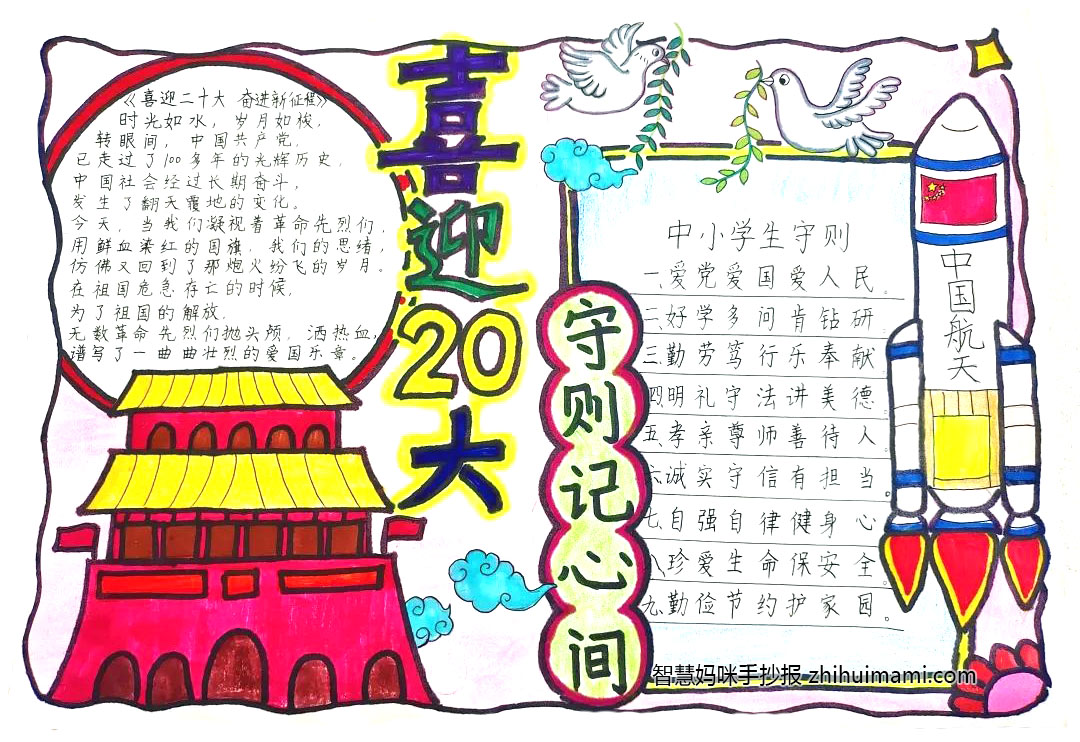 《喜迎二十大 奋进新征程》
时光如水，岁月如梭，
转眼间，中国共产党，
已走过了100多年的光辉历史，
中国社会经过长期奋斗，
发生了翻天覆地的变化。
今天，当我们凝视着革命先烈们，
用鲜血染红的国旗，我们的思绪，
仿佛又回到了那炮火纷飞的岁月。
在祖国危急存亡的时候，
为了祖国的解放，
无数革命先烈们抛头颅，洒热血，
谱写了一曲曲壮烈的爱国乐章。
喜迎20大
守则记心间
中小学生守则
一、爱党爱国爱人民。
二、好学多问肯钻研
三、勤劳笃行乐奉献
四、明礼守法讲美德。
五、孝亲尊师善待人。
六、诚实守信有担当。
七、自强自律健身心
八、珍爱生命保安全。
九、勤俭节约护家园。
中国航天
智慧妈咪手抄报 zhihuimami.com